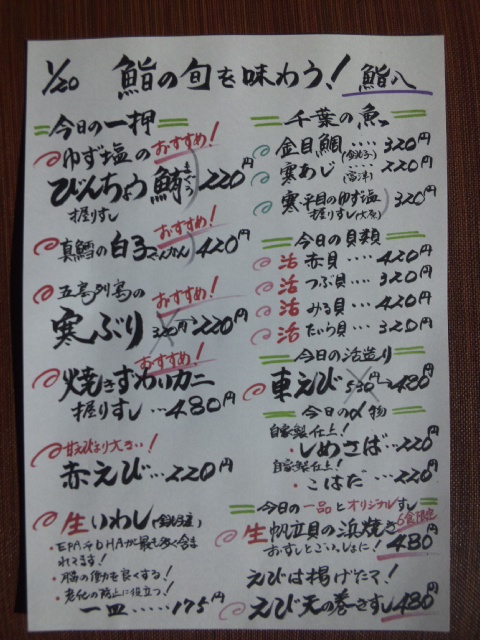 1/20 鮨の旬を味わう! 鮨八
今日の一押
ゆず塩の おすすめ!
びんちょう鮪 まぐろ 220円
握りすし
おすすめ!
真鱈の白子 420円
五島列島の おすすめ!
寒ぶり 320円→220円
おすすめ!
焼きずわいカニ
握りすし…480円
甘えびより大きい!
赤えび…220円
生いわし(銚子産)
・EPAやDHAが最も多く含ま
れてます!
・脳の働きを良くする!
・老化の防止に役立つ!
一皿……175円
千葉の魚
金目鯛(銚子)…320円
寒あじ(富津)…220円
寒平目のゆず塩
握りすし(大原) 320円
今日の貝類
活赤貝…420円
活つぶ貝…320円
活みる貝…420円
活たいら貝…320円
今日の活造り
車えび 530円→480円
今日の〆物
自家製仕上!
・しめさば…220円
自家製仕上!
・こはだ…220円
今日の一品とオリジナルすし
生帆立貝の浜焼き 6食限定
おすしとごいっしょに! 480円
えびは揚げたて!
えび天の巻きすし 480円